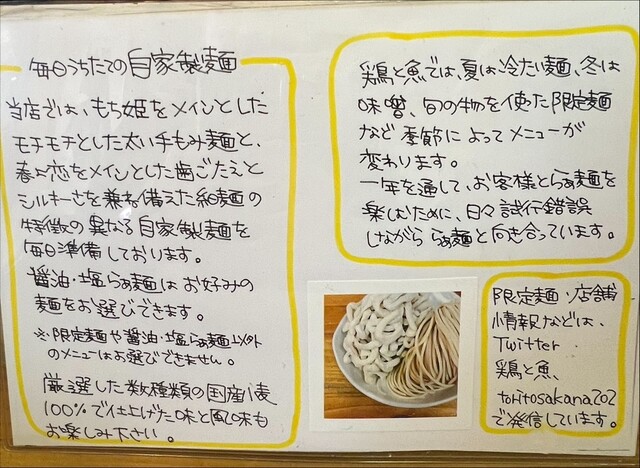 毎日うちたての自家製麺
当店では、もち姫をメインとした
モチモチとした太い手もみ麺と、
春よ恋をメインとした歯ごたえと
シルキーさを兼ね備えた細麺の
特徴の異なる自家製麺を
毎日準備しております。
醤油・塩らぁ麺はお好みの
麺をお選びできます。
※限定麺や醤油・塩らぁ麺以外
のメニューはお選びできません。
厳選した数種類の国産小麦
100%で仕上げた味と風味も
お楽しみ下さい。
鶏と魚では、夏は冷たい麺、冬は
味噌、旬の物を使った限定麺
など季節によってメニューが
変わります。
一年を通して、お客様とらぁ麺を
楽しむために、日々試行錯誤
しながららぁ麺と向き合っています。
限定麺・店舗
情報などは、
Twitter
鶏と魚、
toritosakana202
で発信しています。